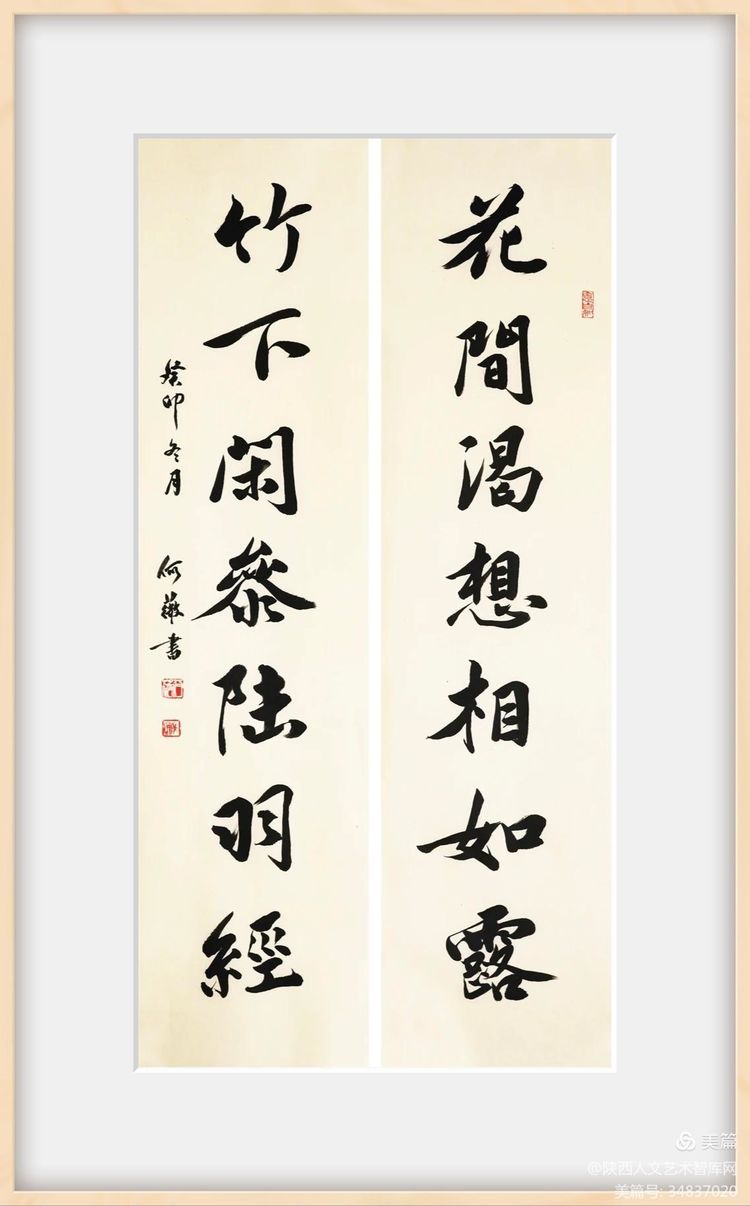 花間渴想相如露
竹下閑參陸羽經
癸卯冬月
何薇書
美篇
@陕西人文艺术智库网
美篇号: 34837020